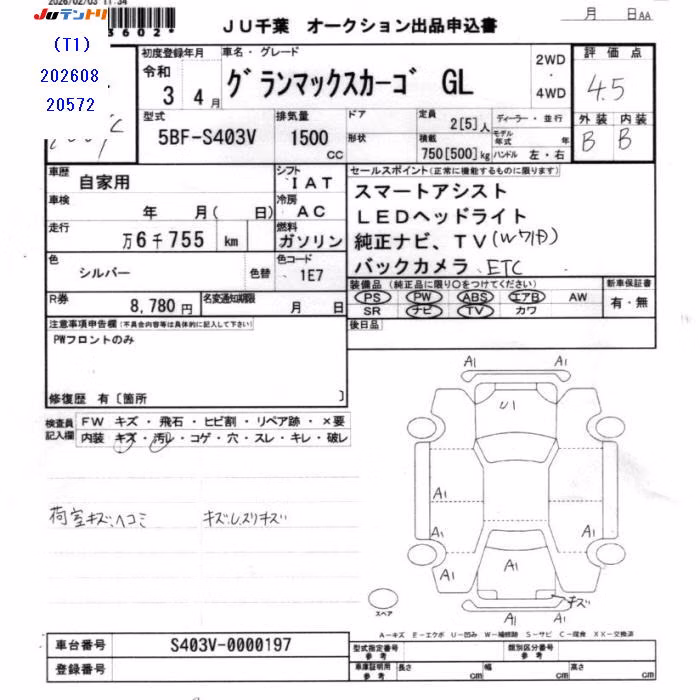 2026/02/03 11:34
JUテントリ
3602
(T1)
202608
20572
JU千葉 オークション出品申込書
月 日AA
初度登録年月
令和
3 4月
車名・グレード
グランマックスカーゴ GL
2WD
・
4WD
評価点
4.5
外装 内装
B B
型式
5BF-S403V
排気量
1500
CC
ドア
形状
定員
2[5]人
積載
750[500]kg
ディーラー・並行
モデル年式 年
ハンドル 左・右
車歴
自家用
シフト
IAT
車検
年 月( 日)
冷房
AC
走行
万6千755 km
燃料
ガソリン
色
シルバー
色替
色コード
1E7
R券
8,780円
名変通知期限
月 日
セールスポイント(正常に機能するものに限ります)
スマートアシスト
LEDヘッドライト
純正ナビ、TV(Wワ内)
バックカメラ ETC
装備品(純正品に限り○をつけてください)
PS PW ABS エアB AW
SR ナビ TV カワ
新車保証書
有・無
後日品
注意事項申告欄(不具合内容等は具体的に記入して下さい)
PWフロントのみ
修復歴 有〔箇所 〕
検査員
記入欄
FW キズ・飛石・ヒビ割・リペア跡・×要
内装 キズ・汚レ・コゲ・穴・スレ・キレ・破レ
荷室キズ、ヘコミ
A1 A1
U1
A1
A1 A1
A1 A1 A1
キズ
A1 A1
スペア
A-キズ E-エクボ U-凹み W-補修跡 S-サビ C-腐食 XX-交換済
車台番号
S403V-0000197
登録番号
型式指定番号
参考
類別区分番号
参考
車庫証明用
参考
長さ cm
幅 cm
高さ cm